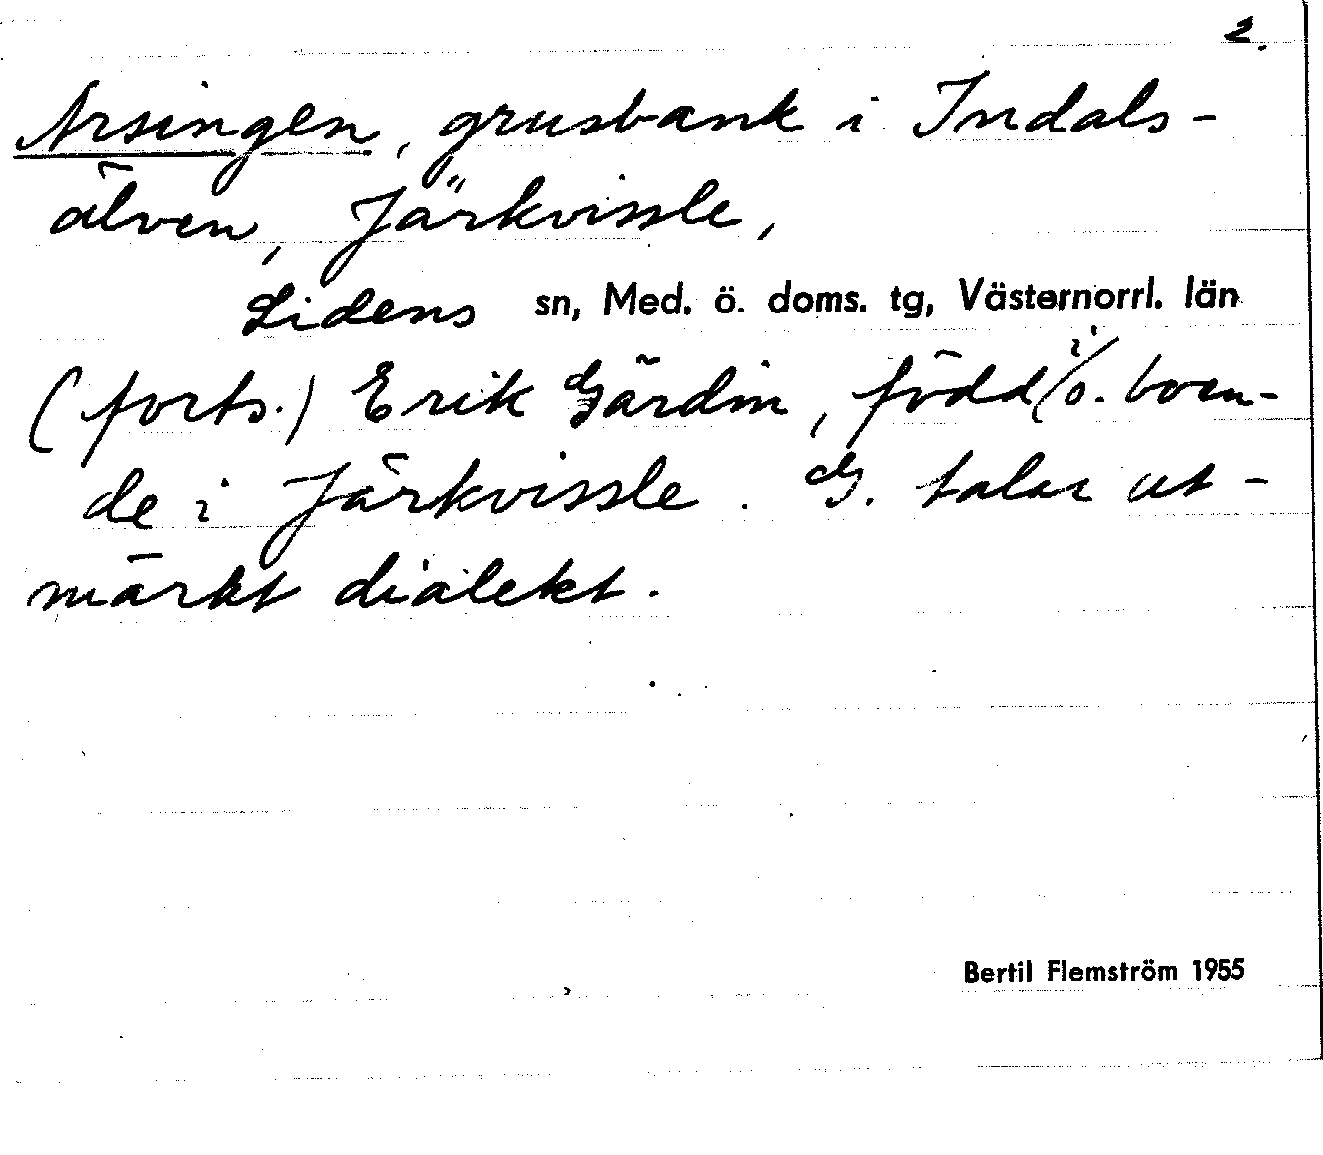 2.
Arsingen, grusbank i Indals-
älven, Järkvissle,
Lidens sn, Med. ö. doms. tg, Västernorrl. län
(forts.) Erik Gärdin, född i/ o. boen-
de i Järkvissle. G. talar ut-
märkt dialekt.
Bertil Flemström 1955